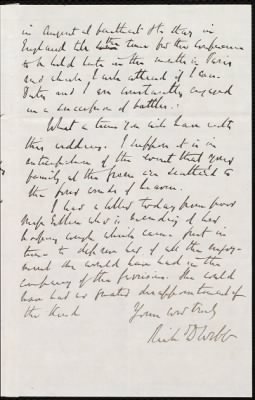 in August at
England the time for the Conference
to be held late in this month in Paris
and which I shall attend if I can.
But and I am constantly engaged
in a succession of battles.
What a time you will have with
this wedding. I suppose it is in
anticipation of the event that your
family at the from are scattered to
the four winds of heaven.
I had a letter today from poor
Miss Estlin who is mending of her
hooping cough which came just in
time to deprive her of all the enjoy-
ment she would have had in the
company of the Garrisons. She could
have had no greater disappointment of
the kind
Yours most truly
Rich D Webb